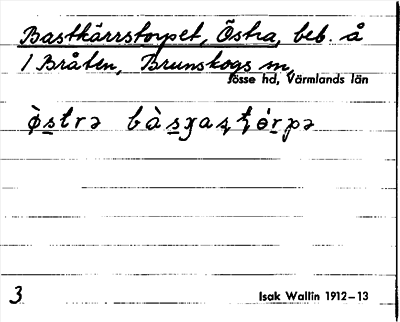 Bastkärrstorpet, Östra, beb. å
1 Bråten, Brunskogs sn,
Jösse hd, Värmlands län
ø̀s̱trə bàs̱χaʂʈɵ́ṟpə
3
Isak Wallin 1912–13